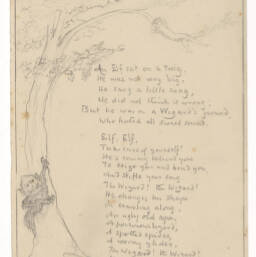 An Elf sat on a twig,
He was not very big,
He sang a little song,
He did not think it wrong;
But he was on a Wizard's ground,
Who hated all sweet sound.
Elf, Elf,
Take care of yourself
He's coming behind you
To seize you and bind you,
And stifle your song.
The Wizard! the Wizard!
He changes his shape
In crawling along,
An ugly old ape,
A poisonous lizard,
A spotted spider,
A wormy glider,
The Wizard! the Wizard!